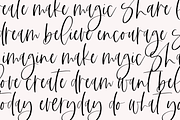 create make magic share
dream believe encourage s
imagine make magic s
love create dream want bel
today everyday do what yo